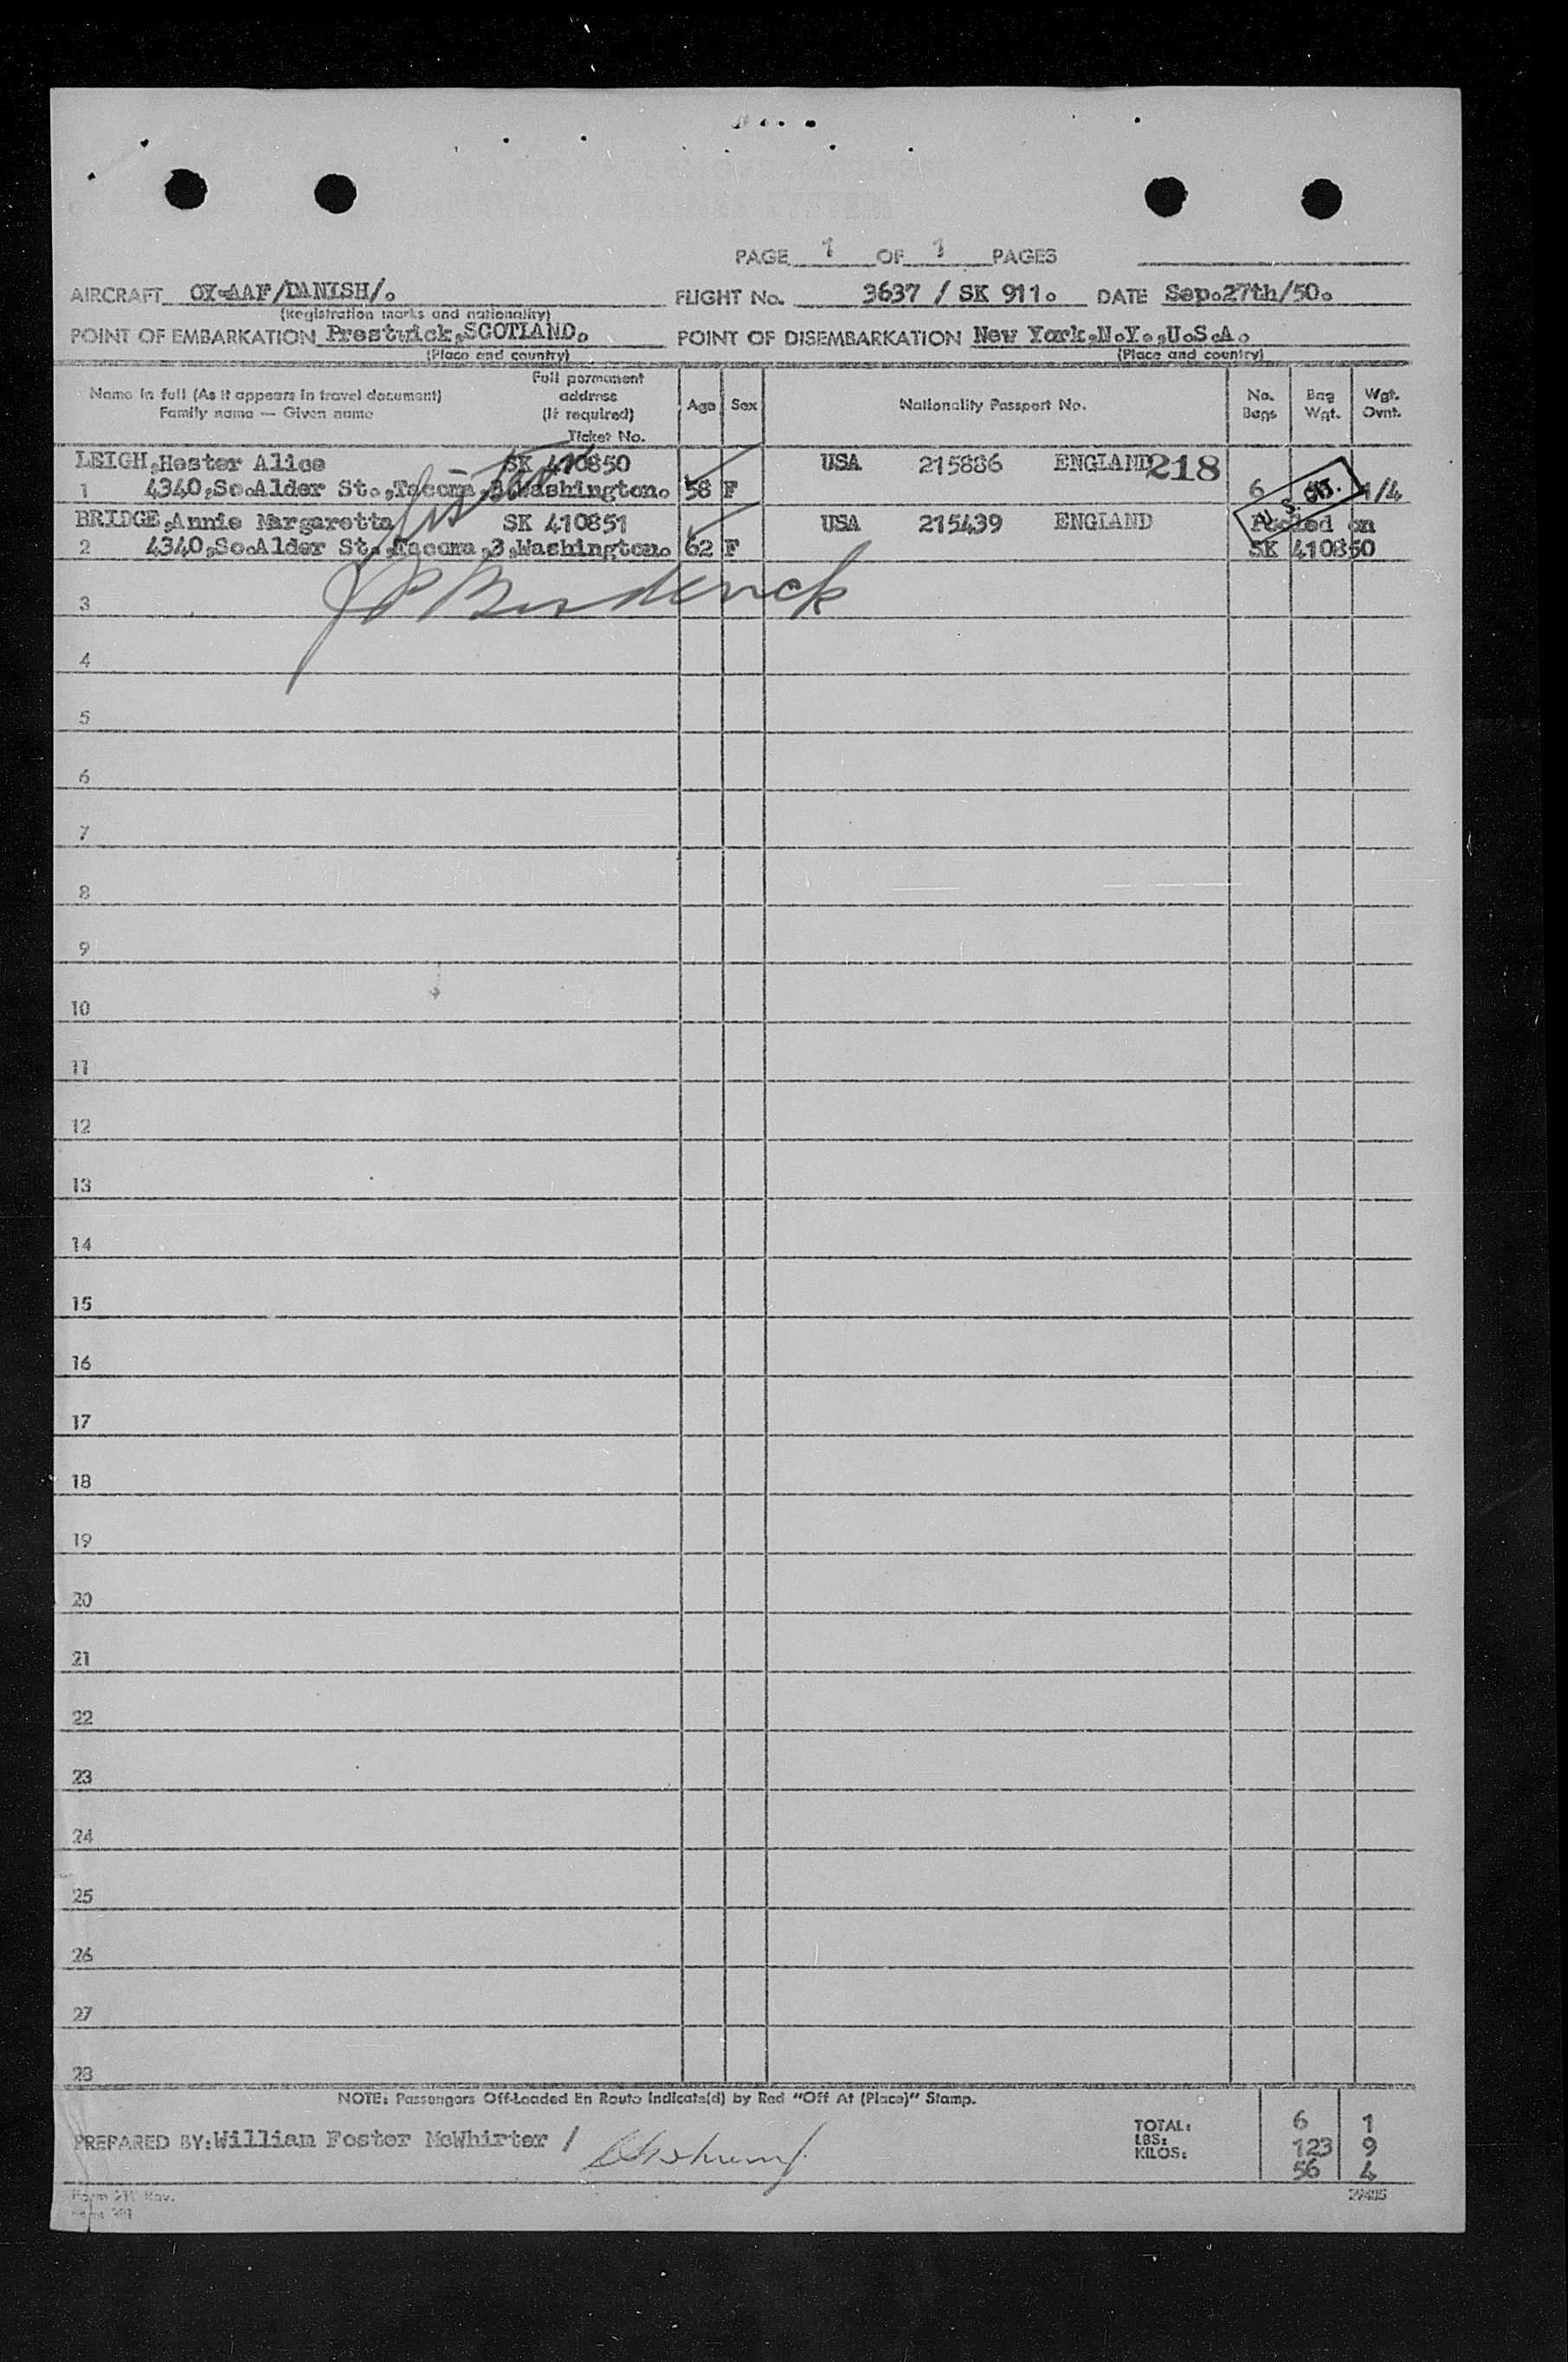 PAGE 1 OF 1 PAGES
AIRCRAFT OY-AAF/DANISH/. FLIGHT No. 3637 / SK 911. DATE Sep.27th/50.
(Registration marks and nationality)
POINT OF EMBARKATION Prestwick,SCOTLAND. POINT OF DISEMBARKATION New York,N.Y.,U.S.A.
(Place and country) (Place and country)
Name in full (As it appears in travel document)
Family name — Given name
Full permanent
address
(If required)
Ticket No.
Age Sex Nationality Passport No.
No.
Bags
Bag
Wgt.
Wgt.
Ovnt.
LEIGH,Hester Alice SK 410850 USA 215886 ENGLAND 218
1 4340,So.Alder St.,Tacoma,3,Washington. 58 F 6 1/4
BRIDGE,Annie Margaretta SK 410851 USA 215439 ENGLAND Pooled on
2 4340,So.Alder St.,Tacoma,3,Washington. 62 F SK 410850
3
4
5
6
7
8
9
10
11
12
13
14
15
16
17
18
19
20
21
22
23
24
25
26
27
28
NOTE: Passengers Off-Loaded En Route Indicate(d) by Red "Off At (Place)" Stamp.
PREPARED BY: William Foster McWhirter /
TOTAL: 6 1
LBS: 123 9
KILOS: 56 4
29405